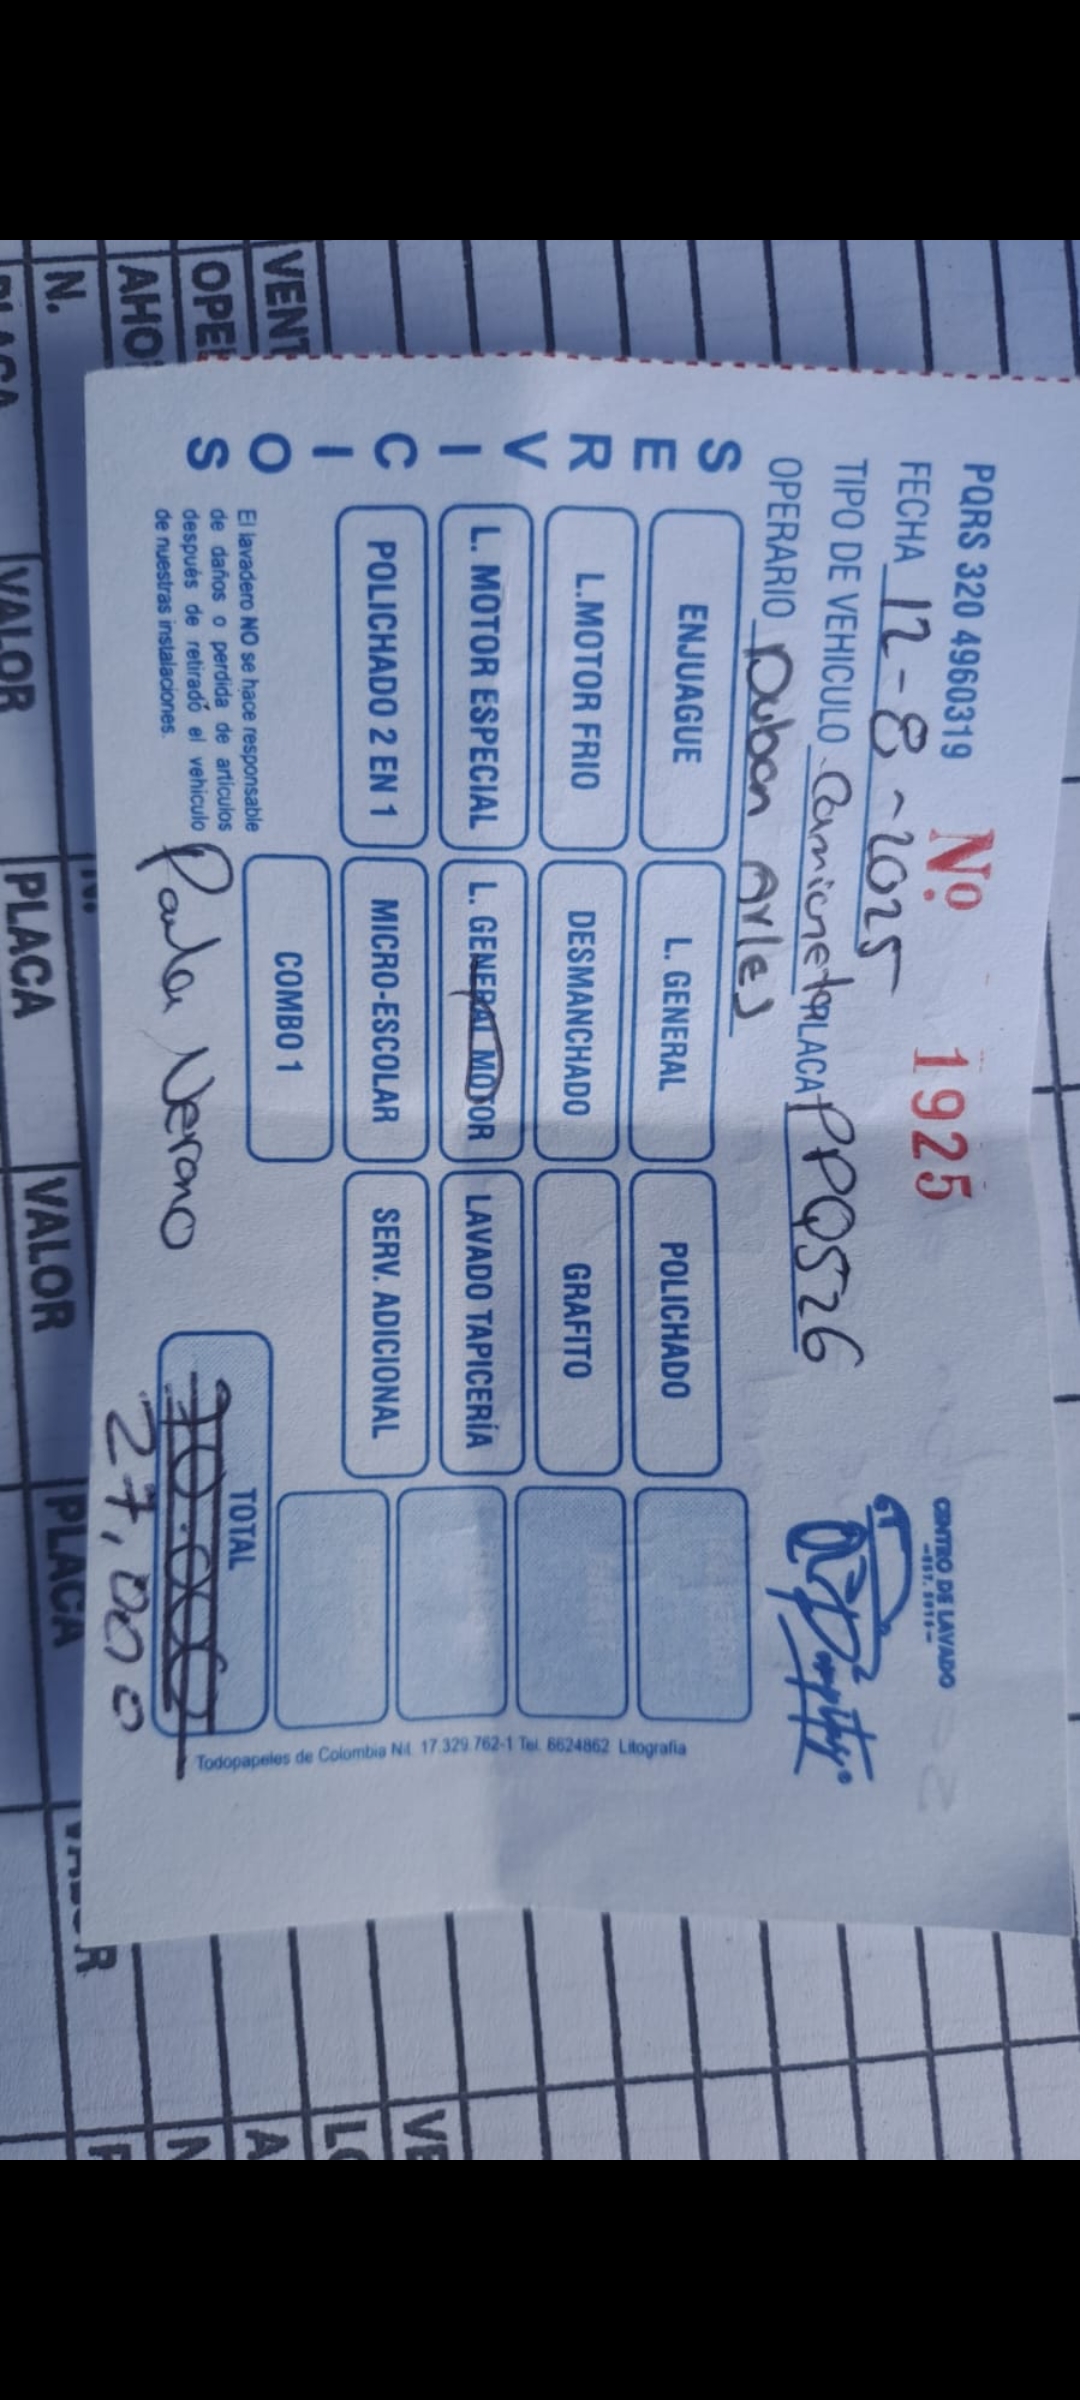 PQRS 320 4960319
Nº 1925
CENTRO DE LAVADO
FECHA 12-8-2025
TIPO DE VEHICULO Camioneta PLACA PPQ526
OPERARIO Duban Arles
SERVICIOS
ENJUAGUE L. GENERAL POLICHADO
L.MOTOR FRIO DESMANCHADO GRAFITO
L. MOTOR ESPECIAL L. GENERAL MOTOR LAVADO TAPICERÍA
POLICHADO 2 EN 1 MICRO-ESCOLAR SERV. ADICIONAL
COMBO 1
El lavadero NO se hace responsable
de daños o perdida de artículos
después de retirado el vehiculo
de nuestras instalaciones.
Paula Nerano
TOTAL
27,000
Todopapeles de Colombia Nit. 17.329.762-1 Tel. 6624862 Litografía
VENT
OPE
AHO
N.
PLACA
VALOR
N.
PLACA
VALOR
PLACA
VALOR
VE
LO
A
N
P